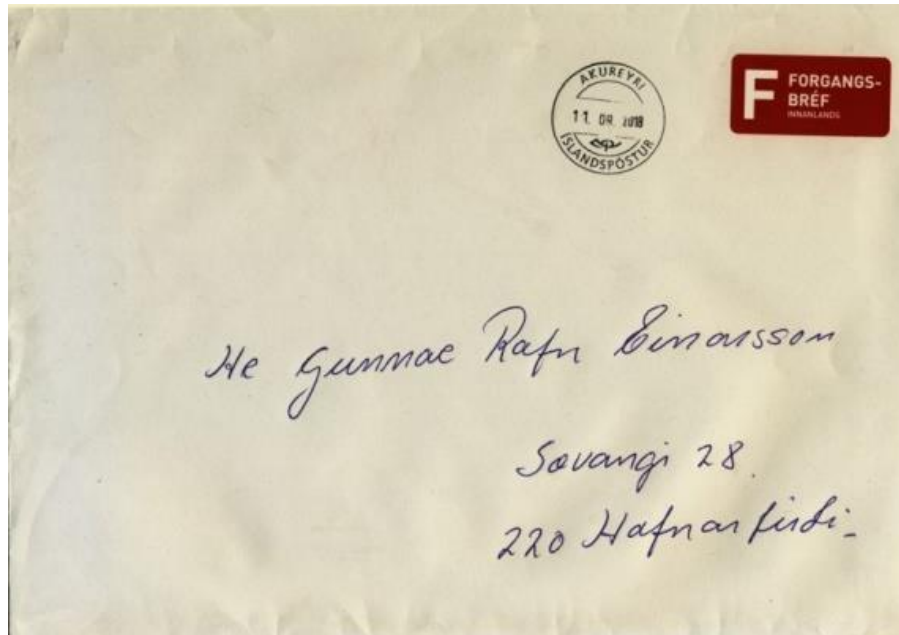 AKUREYRI
11. 09. 2018
ÍSLANDSPÓSTUR
F FORGANGS-
BRÉF
INNANLANDS
Hr Gunnar Rafn Einarsson
Sævangi 28
220 Hafnarfirði